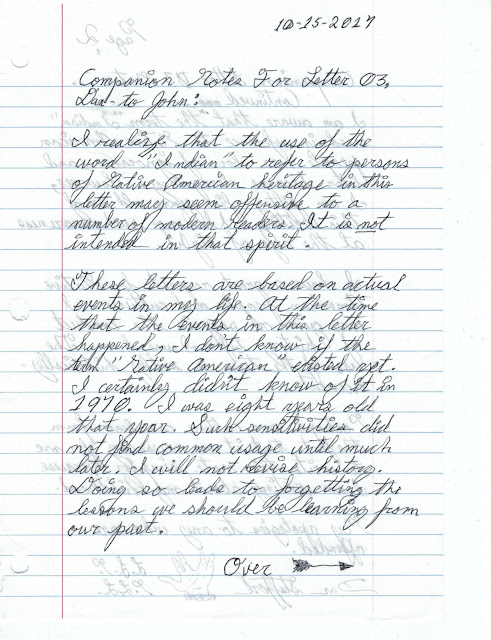 10-15-2017
Companion Notes For Letter 03,
Dan to John:
I realize that the use of the
word "Indian" to refer to persons
of Native American heritage in this
letter may seem offensive to a
number of modern readers. It is not
intended in that spirit.
These letters are based on actual
events in my life. At the time
that the events in this letter
happened, I don't know if the
term "Native American" existed yet.
I certainly didn't know of it in
1970. I was eight years old
that year. Such sensitivities did
not find common usage until much
later. I will not revise history.
Doing so leads to forgetting the
lessons we should be learning from
our past.
Over